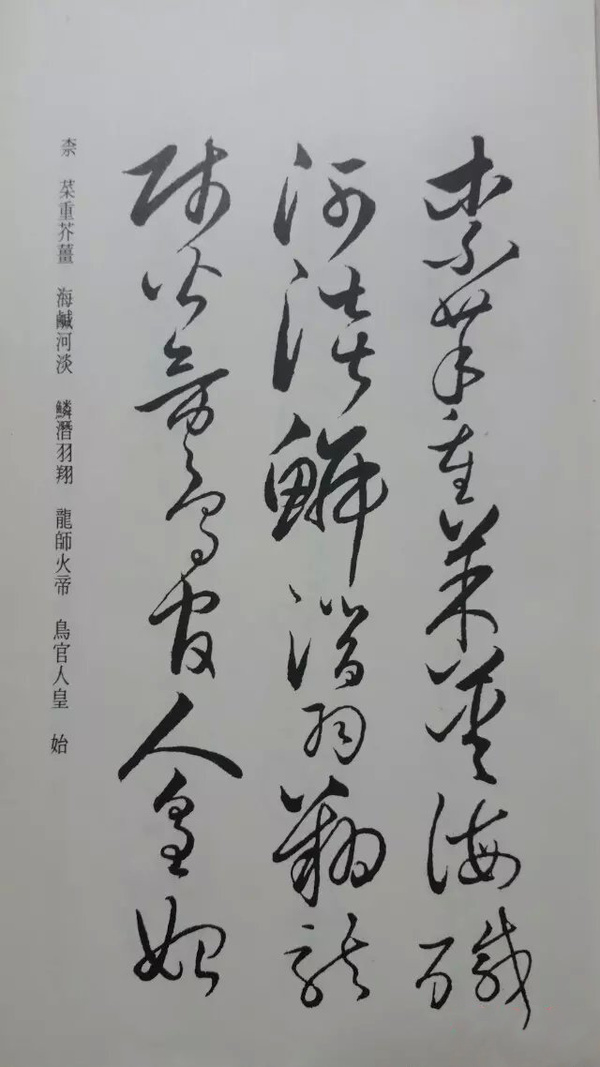 柰菜重芥薑海鹹
河淡鱗潛羽翔龍
師火帝鳥官人皇始
柰　菜重芥薑　海鹹河淡　鱗潛羽翔　龍師火帝　鳥官人皇　始